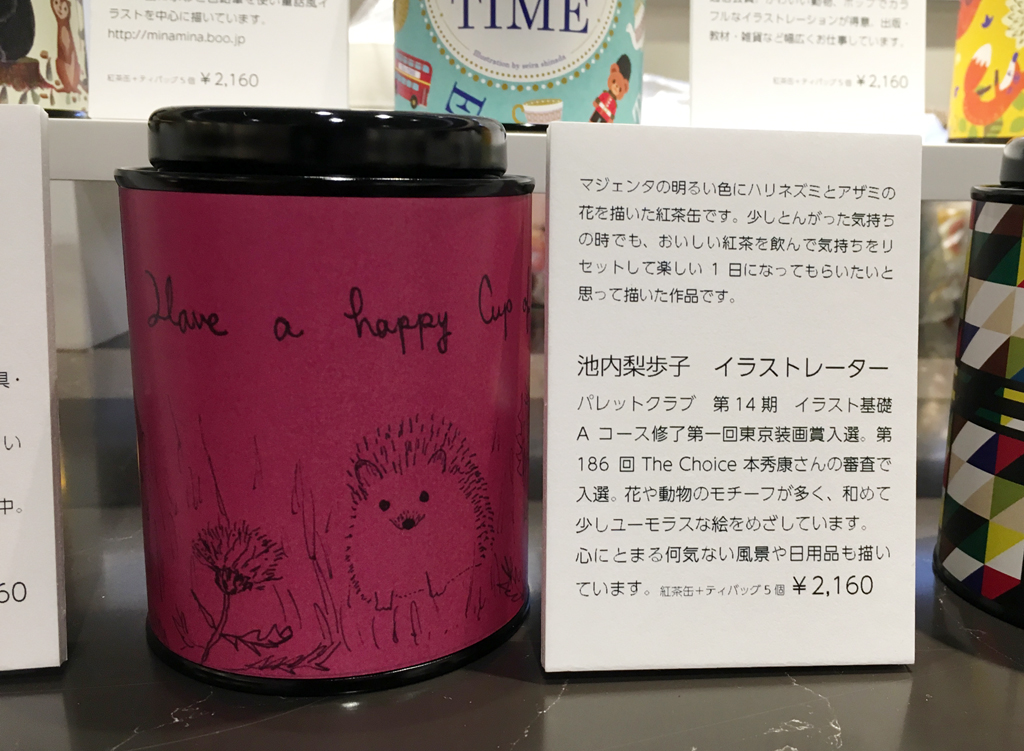 い鉛筆を使い童話風イ
ラストを中心に描いています。
http://minamina.boo.jp
紅茶缶+ティバッグ5個 ¥2,160
TIME
Illustration by seira shinoda
E
かわいい動物、ポップでカラ
フルなイラストレーションが得意。出版・
教材・雑貨など幅広くお仕事しています。
紅茶缶+ティバッグ5個 ¥2,160
Have a happy Cup
マジェンタの明るい色にハリネズミとアザミの
花を描いた紅茶缶です。少しとんがった気持ち
の時でも、おいしい紅茶を飲んで気持ちをリ
セットして楽しい 1 日になってもらいたいと
思って描いた作品です。
池内梨歩子 イラストレーター
パレットクラブ 第14期 イラスト基礎
A コース修了第一回東京装画賞入選。第
186 回 The Choice 本秀康さんの審査で
入選。花や動物のモチーフが多く、和めて
少しユーモラスな絵をめざしています。
心にとまる何気ない風景や日用品も描い
ています。紅茶缶+ティバッグ5個 ¥2,160
具・
い
中。
60